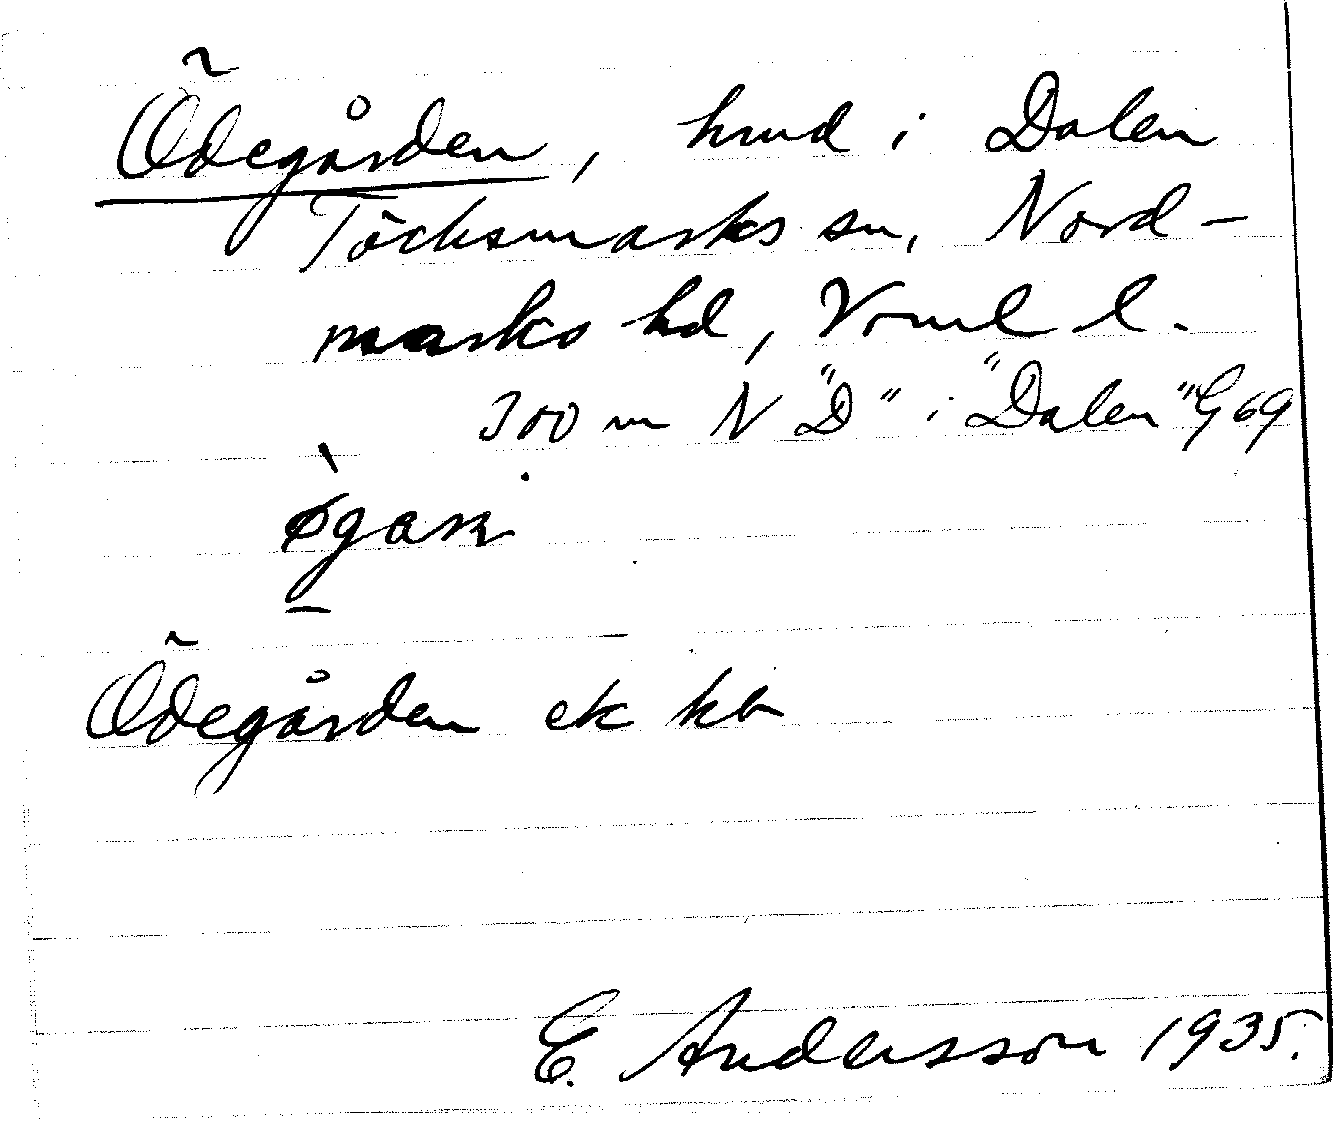 Ödegården, hmd i Dalen
Töcksmarks sn, Nord-
marks hd, Vrml l.
300 m N "D" i "Dalen" G69
Ödegården ek kb
E. Andersson 1935.